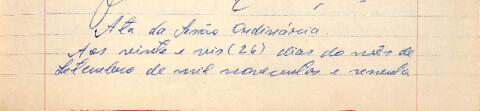 Ata da Sessão Ordinária.
Aos vinte e seis (26) dias do mês de
Setembro de mil novecentos e sessenta